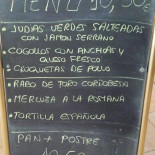 MENU 10,50€
• JUDIAS VERDES SALTEADAS
CON JAMON SERRANO
• COGOLLOS CON ANCHOAS Y
QUESO FRESCO
• CROQUETAS DE POLLO
• RABO DE TORO CORDOBESA
• MERLUZA A LA ROMANA
• TORTILLA ESPAÑOLA
PAN + POSTRE